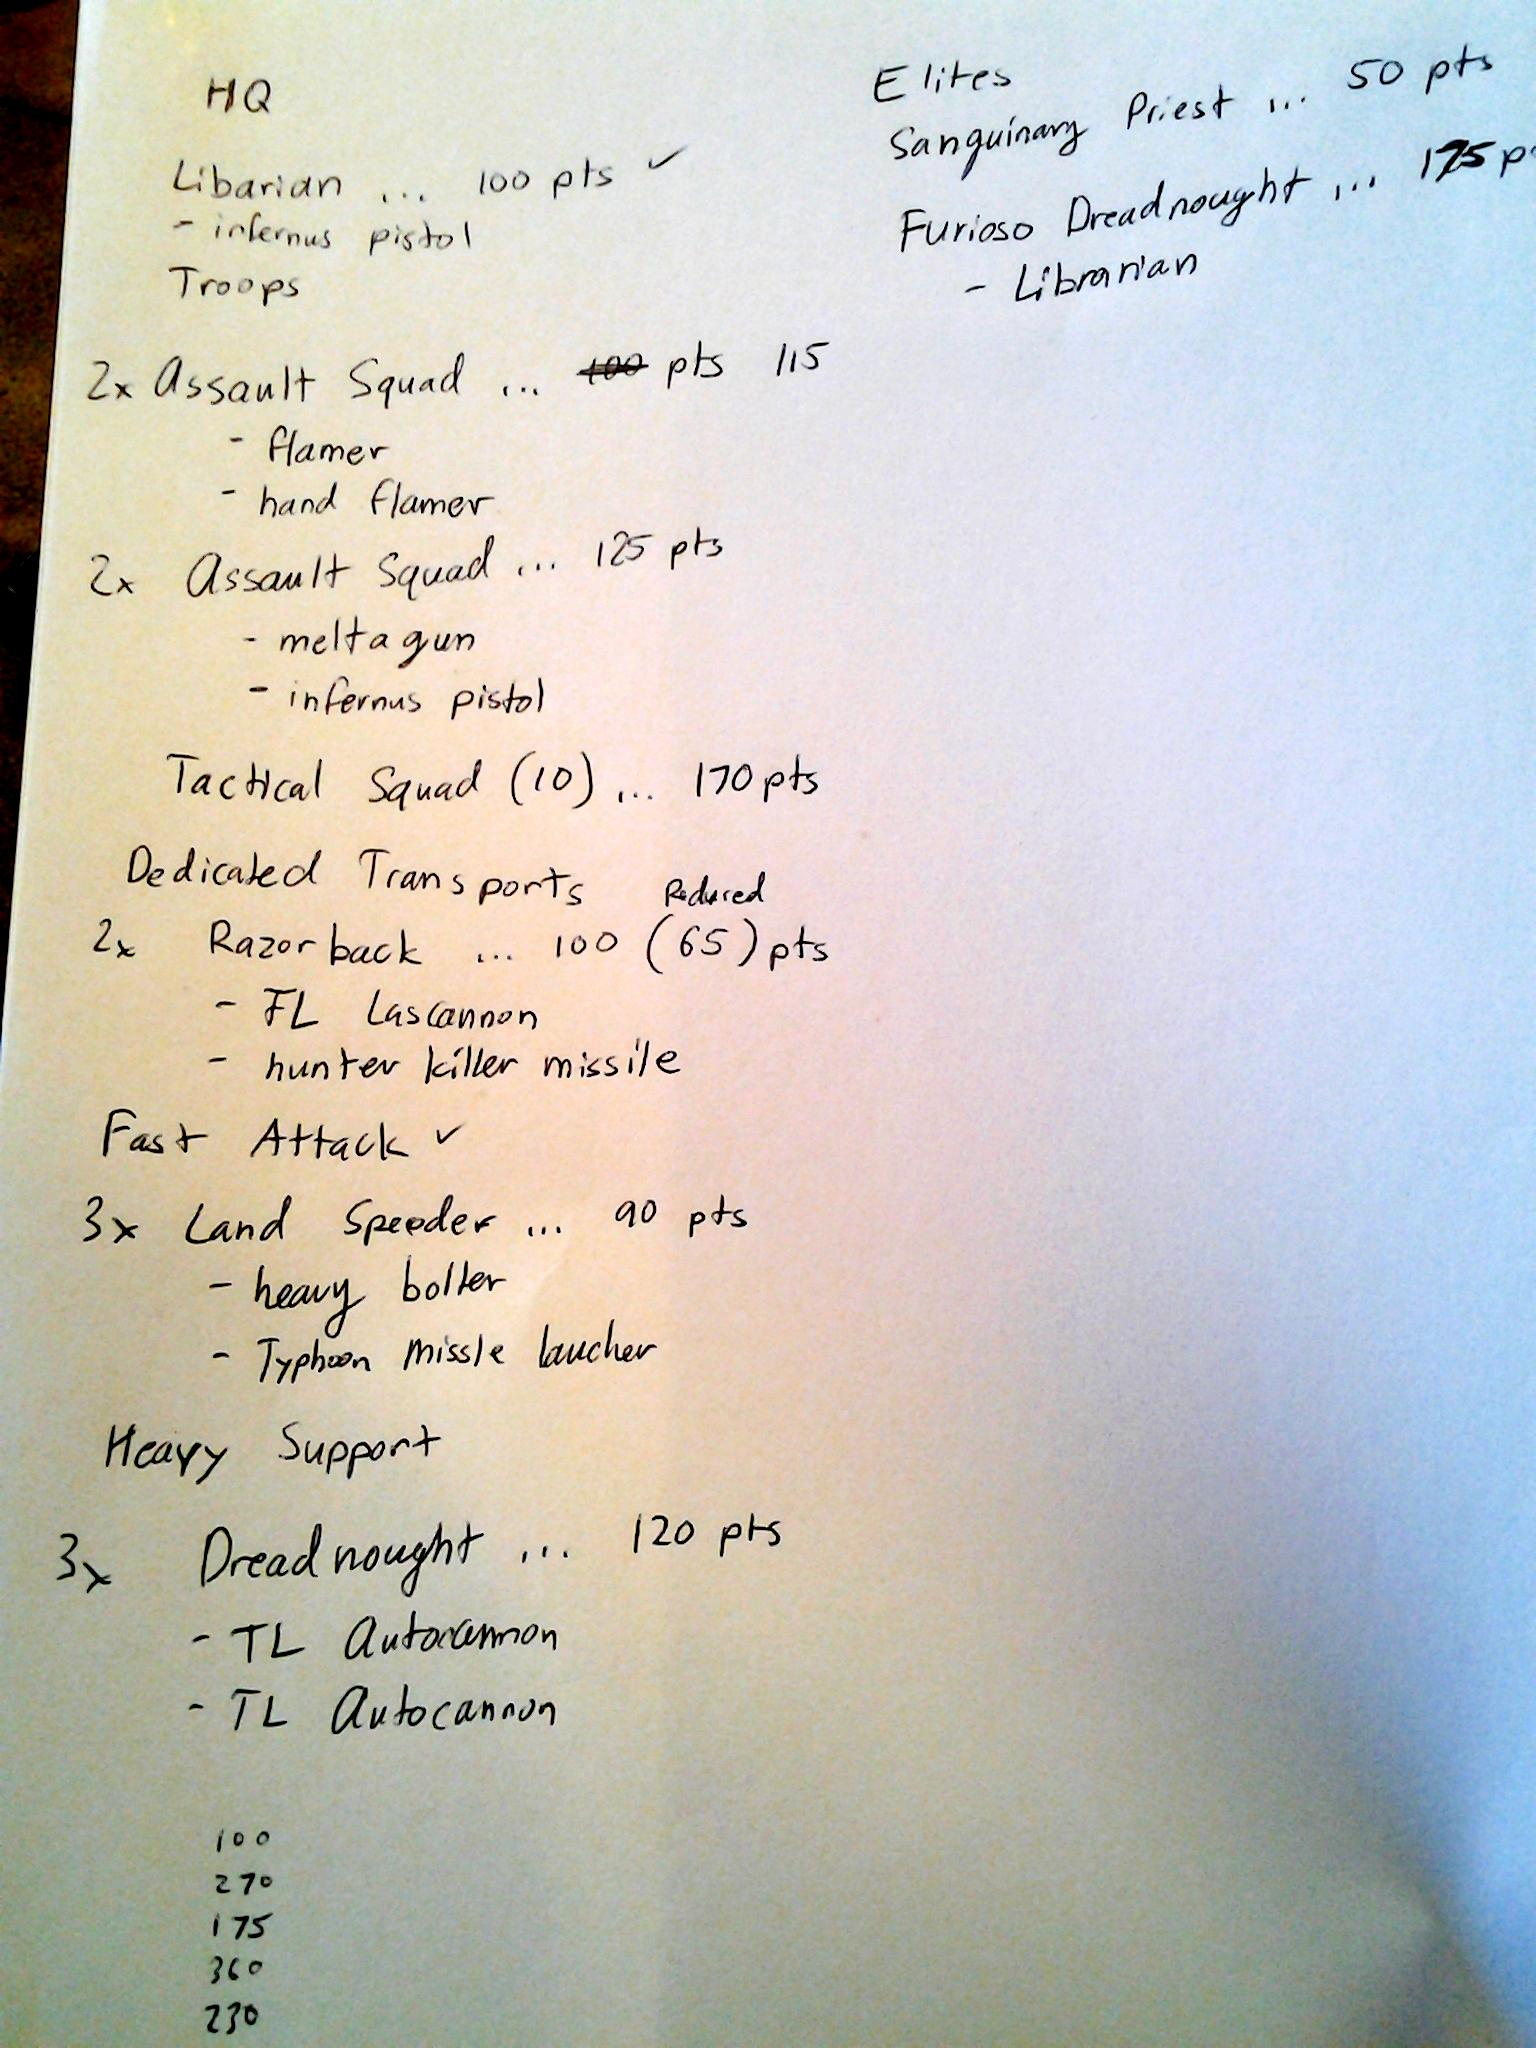 HQ
Libarian ... 100 pts ✓
- infernus pistol
Troops
2x Assault Squad ... 100 pts 115
- flamer
- hand flamer
2x Assault Squad ... 125 pts
- meltagun
- infernus pistol
Tactical Squad (10) ... 170 pts
Dedicated Transports
Reduced
2x Razorback ... 100 (65) pts
- TL Lascannon
- hunter killer missile
Fast Attack ✓
3x Land Speeder ... 90 pts
- heavy bolter
- Typhoon missle laucher
Heavy Support
3x Dreadnought ... 120 pts
- TL Autocannon
- TL Autocannon
100
270
175
360
230
Elites
Sanguinary Priest ... 50 pts
Furioso Dreadnought ... 175 p
- Librarian